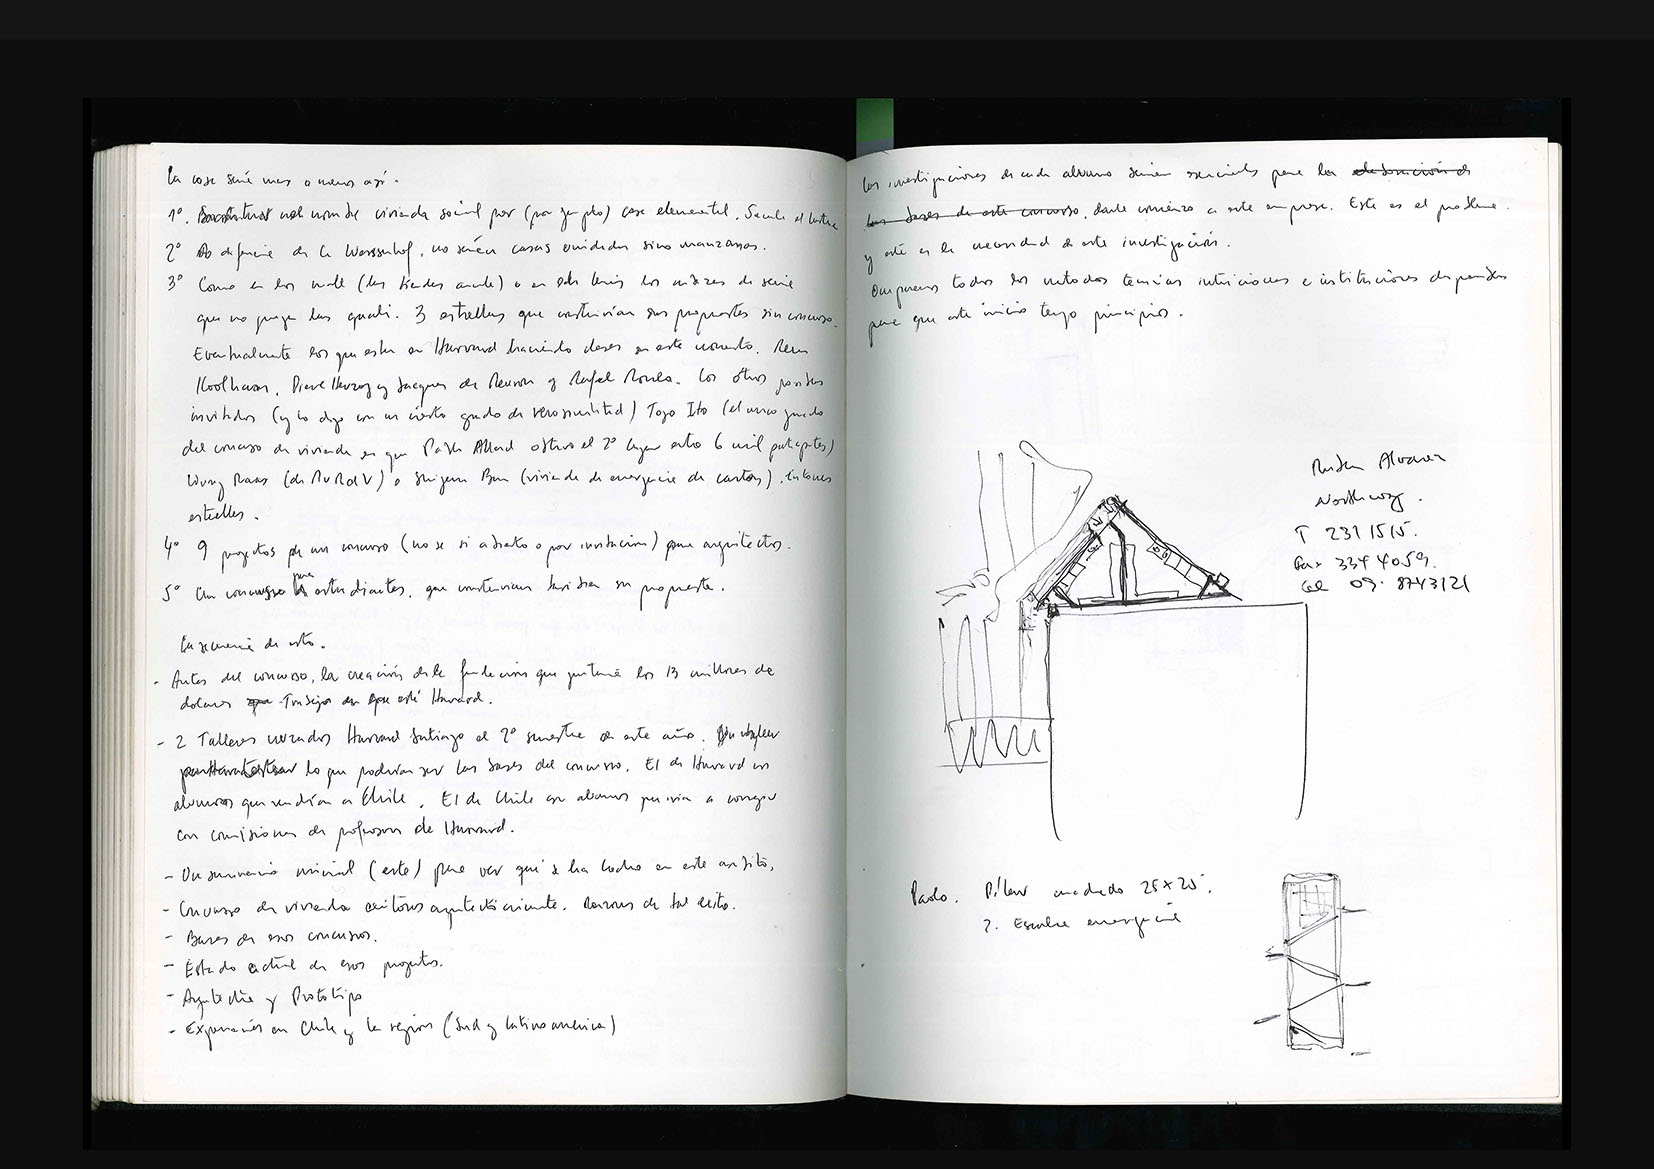 La cosa sería mas o menos así.
1º. nombre vivienda social por (por ejemplo) casa elemental. Sacarle el lastre
2º A diferencia de la Weissenhof, no serían casas sino manzanas.
3º Como en los mall (las tiendas ancla) o en los de serie
que no juegan las quali. 3 estrellas que construirían sus propuestas sin concurso.
Eventualmente los que estan en Harvard haciendo clases en este momento. Rem
Koolhaas, Pierre Herzog y Jacques de Meuron y Rafael Moneo. Los otros posibles
invitados (y lo digo con un cierto grado de verosimilitud) Toyo Ito (el
del concurso de vivienda en que Pablo Allard obtuvo el 2º lugar entre 6 mil participantes)
Winy Maas (de MVRDV) o Shigeru Ban (vivienda de emergencia de cartón). Entonces
estrellas.
4º 9 proyectos de un concurso (no se si abierto o por invitación) para arquitectos.
5º Un concurso para estudiantes, que construirían tambien su propuesta.
La secuencia de esto.
- Antes del concurso, la creación de la fundación que juntaría los 13 millones de
dolares Trabajo en que esté Harvard.
- 2 Talleres cruzados Harvard Santiago el 2º semestre de este año.
lo que podrían ser las bases del concurso. El de Harvard con
alumnos que vendrían a Chile. El de Chile con alumnos que iría a corregir
con comisiones de profesores de Harvard.
- Un seminario inicial (este) para ver qué se ha hecho en este ámbito,
- Concurso de vivienda exitosos arquitectónicamente. Razones de tal éxito.
- Bases de esos concursos.
- Estado actual de esos proyectos.
- Arquitectura y Prototipo
- Experiencias en Chile y la región (Sud y latinoamérica)
Las investigaciones de cada alumno serían esenciales para la elaboración de
las bases de este concurso, darle comienzo a esta empresa. Este es el problema.
y esta es la necesidad de esta investigación.
Ocuparemos todos los metodos tecnicas intuiciones e instituciones disponibles
para que este inicio tenga principios.
Ruben Alvarez
Northway.
T 231 1515.
Fax 334 4059.
Cel 09. 8743121
Paolo. Pilar 25 x 25.
2. Escalera emergencia